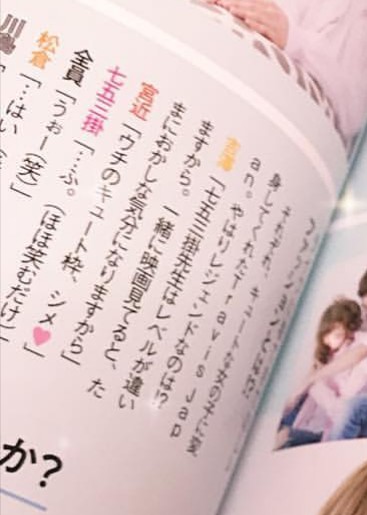 身してくれたTravis Jap
an。やはりレジェンドなのは!?
「七五三掛先生はレベルが違い
ますから。一緒に映画見てると、た
まにおかしな気分になりますから」
宮近「ウチのキュート枠、シメ♥」
七五三掛「…ふ。(ほほ笑むだけ)」
全員「うぉー(笑)」
松倉「…はい
川島「
か?